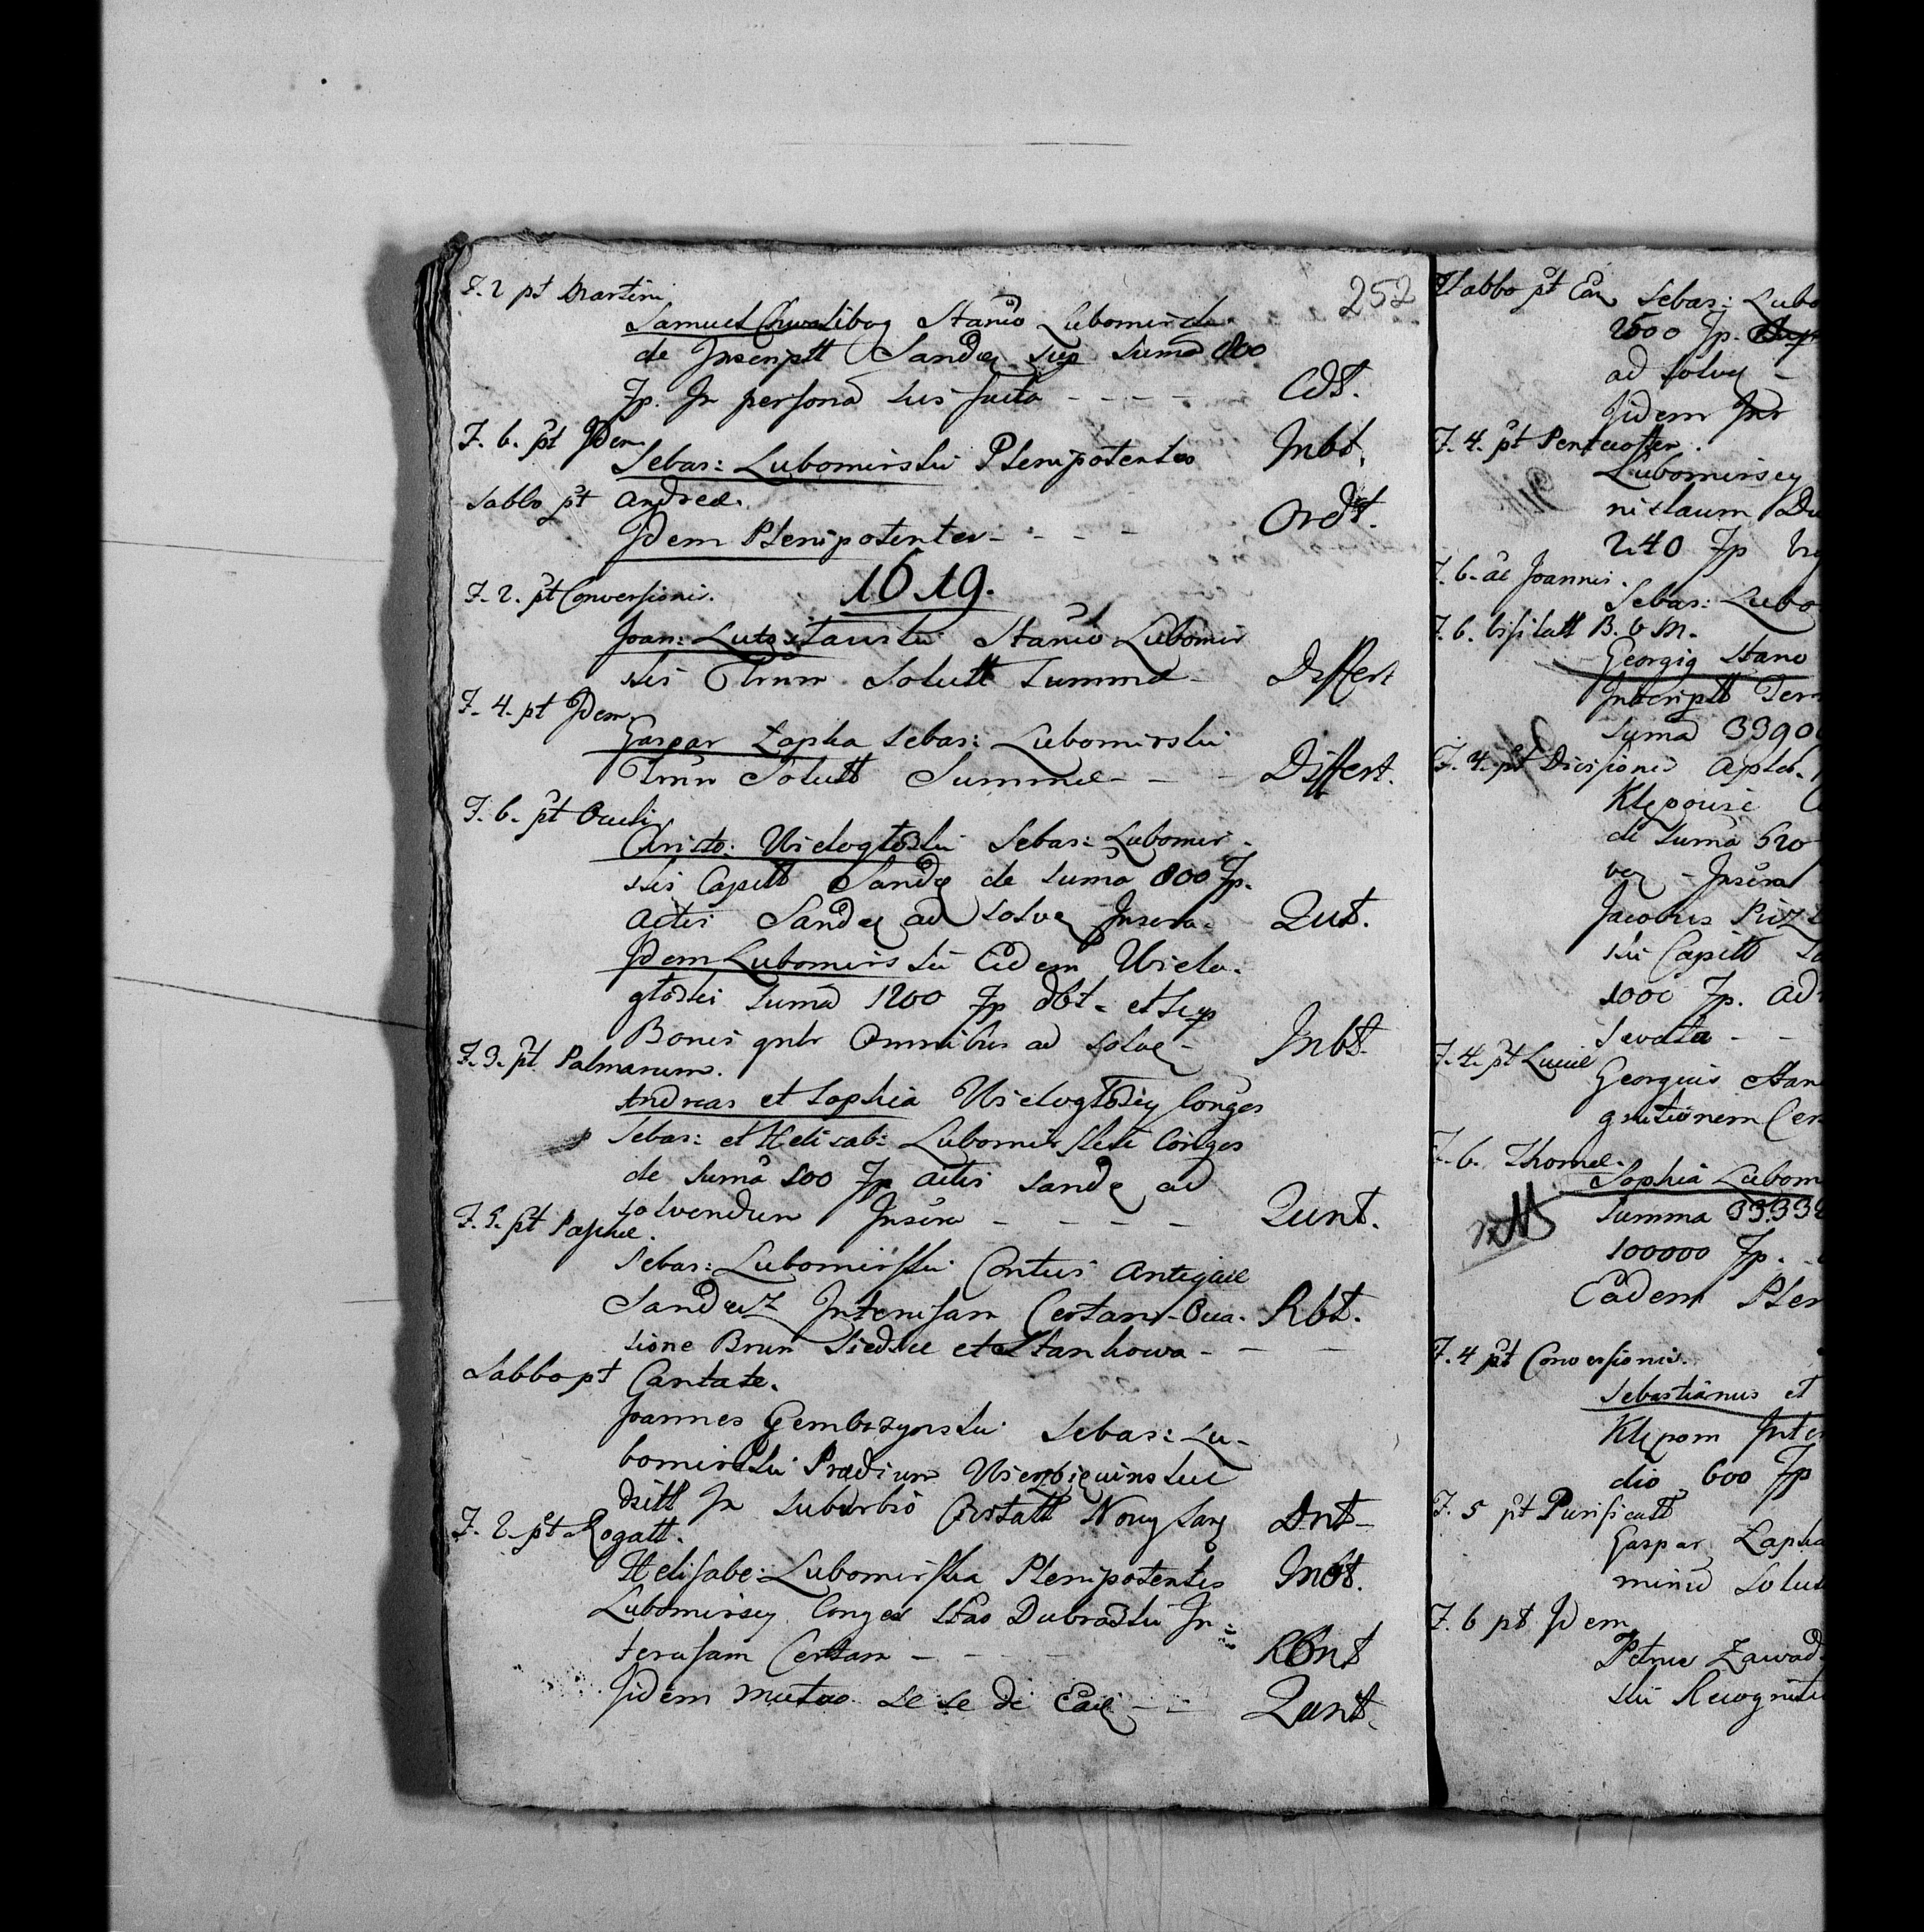 252
F. 2 pt Martini
Samuel Chwalibog Stanio Lubomirski
de Inscriptt Sandq Sup Suma 800
Fp. In persona sui facta - - - - Cdt.
F. 6. pt Idem.
Sebas: Lubomirski Plenipotentes Inbt.
Sabbo pt Andreæ.
Idem Plenipotenter - - - - Ordt.
1619.
F. 2. pt Conversionis.
Joan: Stanio Lubomir
skis Trmn Solutt Summæ - Differt
F. 4. pt Idem
Gaspar Łapka Sebas: Lubomirski
Trmn Solutt Summæ - - - Differt.
F. 6. pt Oculi
Christo: Wielogłoski Sebas: Lubomir-
skis Capitt Sandq de Suma 800 Fp.
actis Sandq ad solvq Inscra- Qut.
Idem Lubomirski Eidem Wielo-
głoski Suma 1200 Fp dbt - et Sup
Bonis gnlr Omnibus ad solvq - Inbt.
F. 3. pt Palmarum.
Andreas et Sophia Wielogłoscy Conges
Sebas: et Helisab: Lubomirskie Conges
de Suma 500 Fp actis Sandq ad
solvendum Inscra - - - - - Qunt.
F. 5. pt Paschæ.
Sebas: Lubomirski Contus Antiquæ
Sandecz Intercisam Certam - Occa- Rbt.
sione Bnrm Siedlce et Stankowa - - -
Sabbo pt Cantate.
Joannes Gembczynski Sebas: Lu-
bomirski Prædium
dictt In Suburbio Civitatt Nowy Sanq Dnt -
F. 2 pt Rogatt.
Helisabe: Lubomirska Plenipotentes Inbt.
Lubomirscy Conges Stao Dubraski In=
tercisam Certam - - - - - Rbnt
Iidem mutuo se se de Eaq - - Qunt.
Sabbo pt Eaq Sebas: Lubo
2500 Fp.
ad solvq -
Iidem
F. 4. pt Pentecosten.
Lubomirscy
nislaum Du
240 Fp
F. 6. ae Joannis.
Sebas: Lubo
F. 6. Visitatt B. V M.
Georgig Stano
Inscriptt Ter
Suma 3390
F. 4. pt Divisionis Aptlo.
Klępowie
de Suma 520
vq - Inscra
Jacobus
ski Capitt Sa
1000 Fp. ad
- -
F. 4. pt Luciæ
Georgius Stan
gnitionem Cer
F. 6. Thomæ.
Sophia Lubom
Summa 3333
100000 Fp. -
Eadem Plen
F. 4 pt Conversionis.
Sebastianus et
Klępom Inter
dio 600 Fp
F. 5 pt Purificatt
Gaspar Łapka
minu Solut
F. 6 pt Idem
Petrus Zawad
ski Recogniti